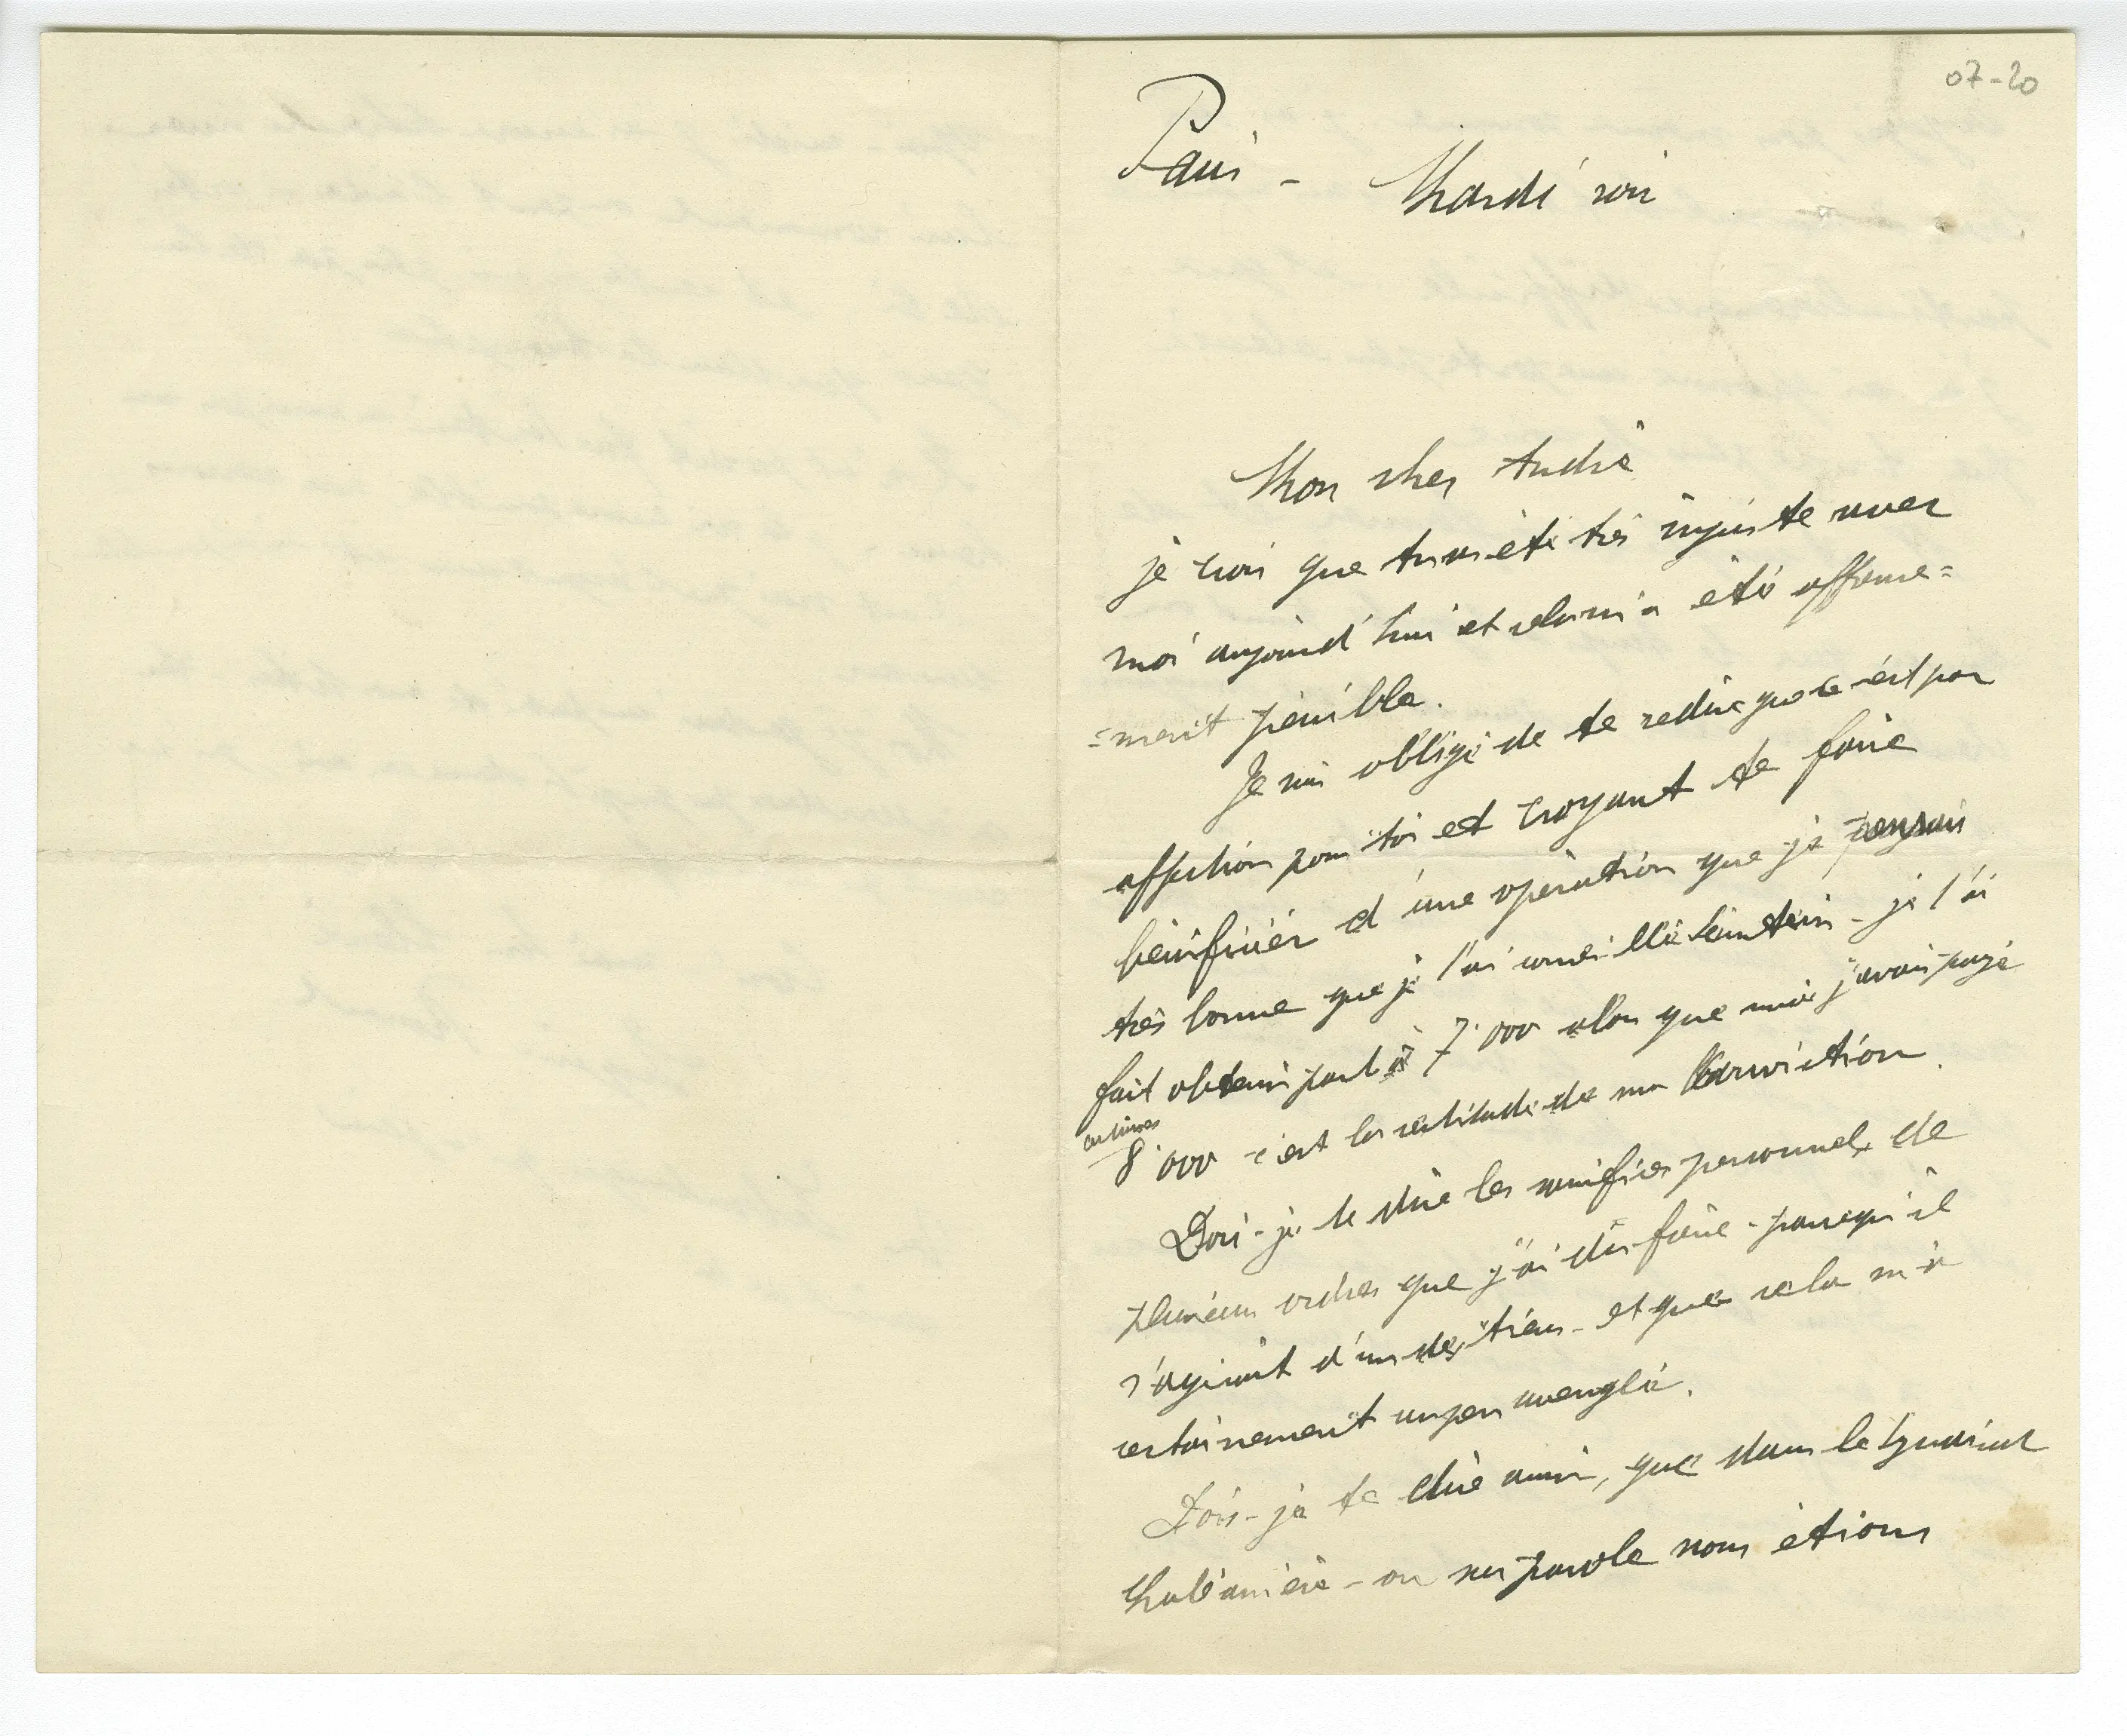 07-20
Paris - Mardi soir
Mon cher André
je crois que tu as été très injuste avec
moi aujourd'hui et cela m'a été affreuse=
=ment pénible.
Je suis obligé de te redire que c'est par
affection pour toi et croyant te faire
bénéficier d'une opération que je pensais
très bonne que je l'ai conseillé - je l'ai
fait obtenir part à 7.000 alors que moi j'avais payé
certaines
8.000 c'est la certitude de ma conviction.
Dois-je te dire les sacrifices personnels de
plusieurs ordres que j'ai dû faire - parce qu'il
s'agissait d'un des tiens - et que cela m'a
certainement un peu aveuglé.
Dois-je te dire aussi, que dans le Syndicat
- on sur parole nous étions